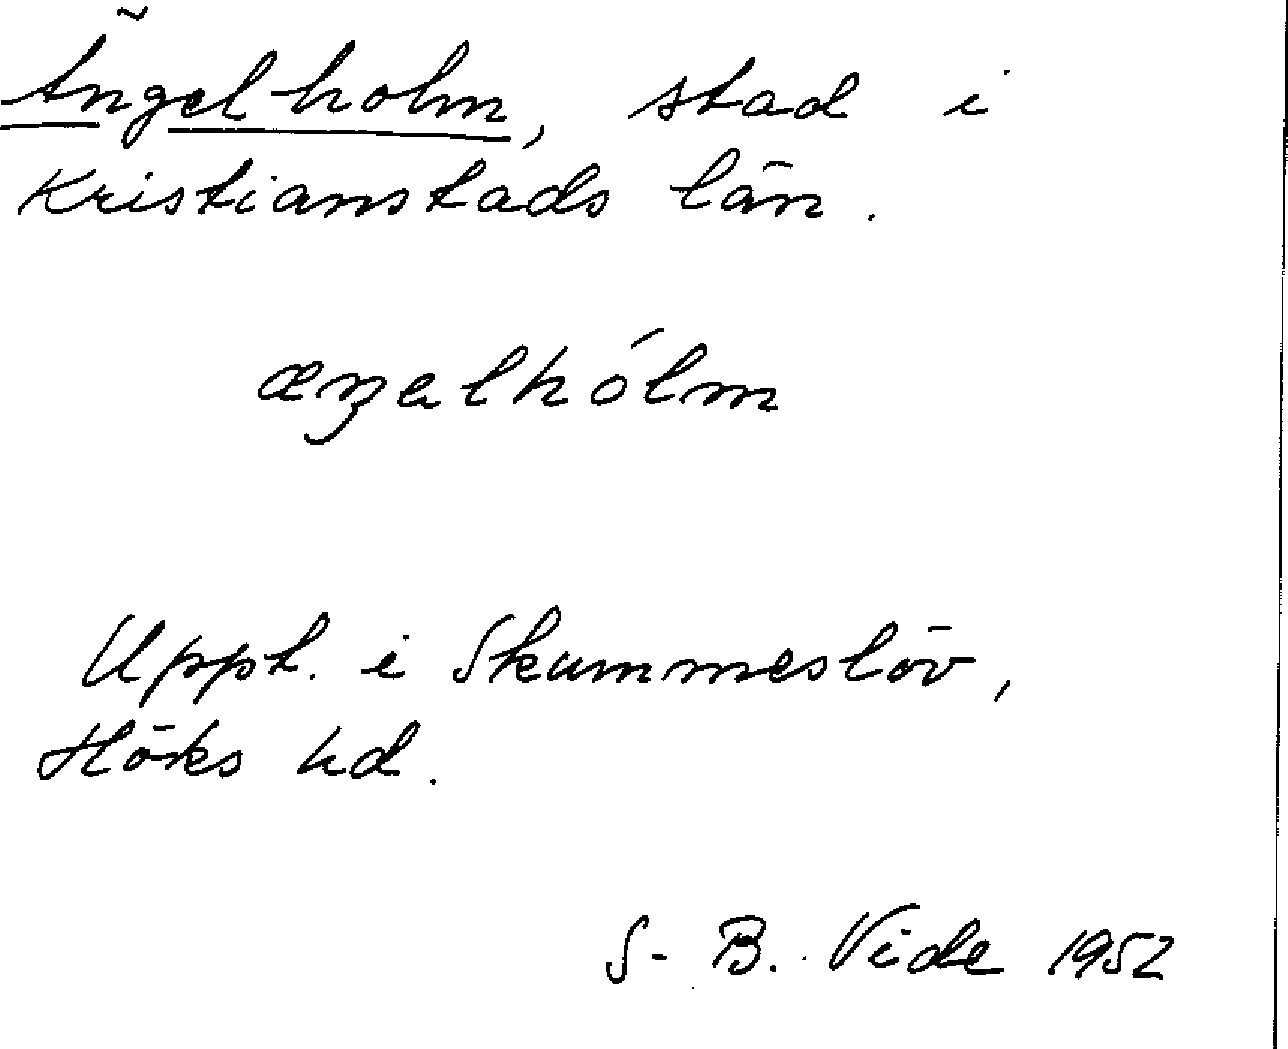 Ängelholm, stad i
Kristianstads län.
æŋəlhólm
Uppt. i Skummeslöv,
Höks hd.
S-B. Vide 1952